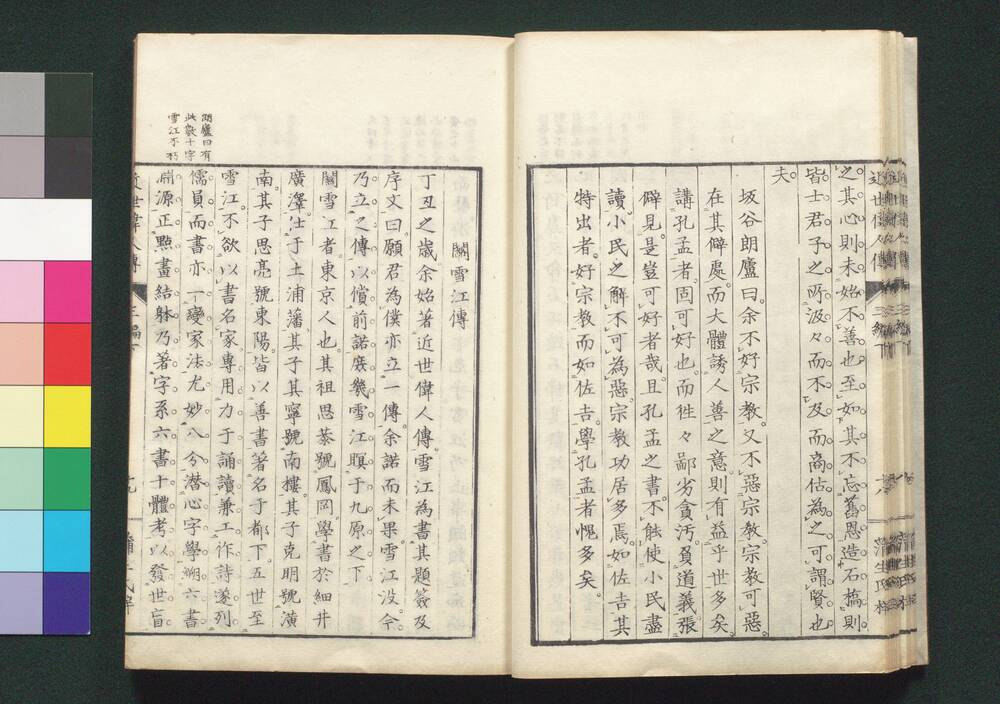 之其心則未始不善也至如其不忘舊恩造石橋則
皆士君子之所汲々而不及而商估為之可謂賢也
夫
坂谷朗廬曰余不好宗教又不惡宗教宗教可惡
在其僻處而大體誘人善之意則有益乎世多矣
講孔孟者固可好也而往々鄙劣貪汚負道義張
僻見是豈可好者哉且孔孟之書不能使小民盡
讀小民之解不可為惡宗教功居多焉如佐吉其
特出者好宗教而如佐吉學孔孟者愧多矣
近世偉人傳
三編
十八
蒲生氏梓
關雪江傳
丁丑之歲余始著近世偉人傳雪江為書其題簽及
序文曰願君為僕亦立一傳余諾而未果雪江沒今
乃立之傳以償前諾庶幾雪江瞑于九原之下
關雪江者東京人也其祖思恭號鳳岡學書於細井
廣澤仕于土浦藩其子其寧號南樓其子克明號潢
南其子思亮號東陽皆以善書著名于都下五世至
雪江不欲以書名家專用力于誦讀兼工作詩遂列
儒員而書亦一變家法尤妙八分潛心字學溯六書
淵源正點畫結躰乃著字系六書十體考以發世盲
朗廬曰有
此數十字
雪江不朽
近世偉人傳
三編
十九
蒲生氏梓